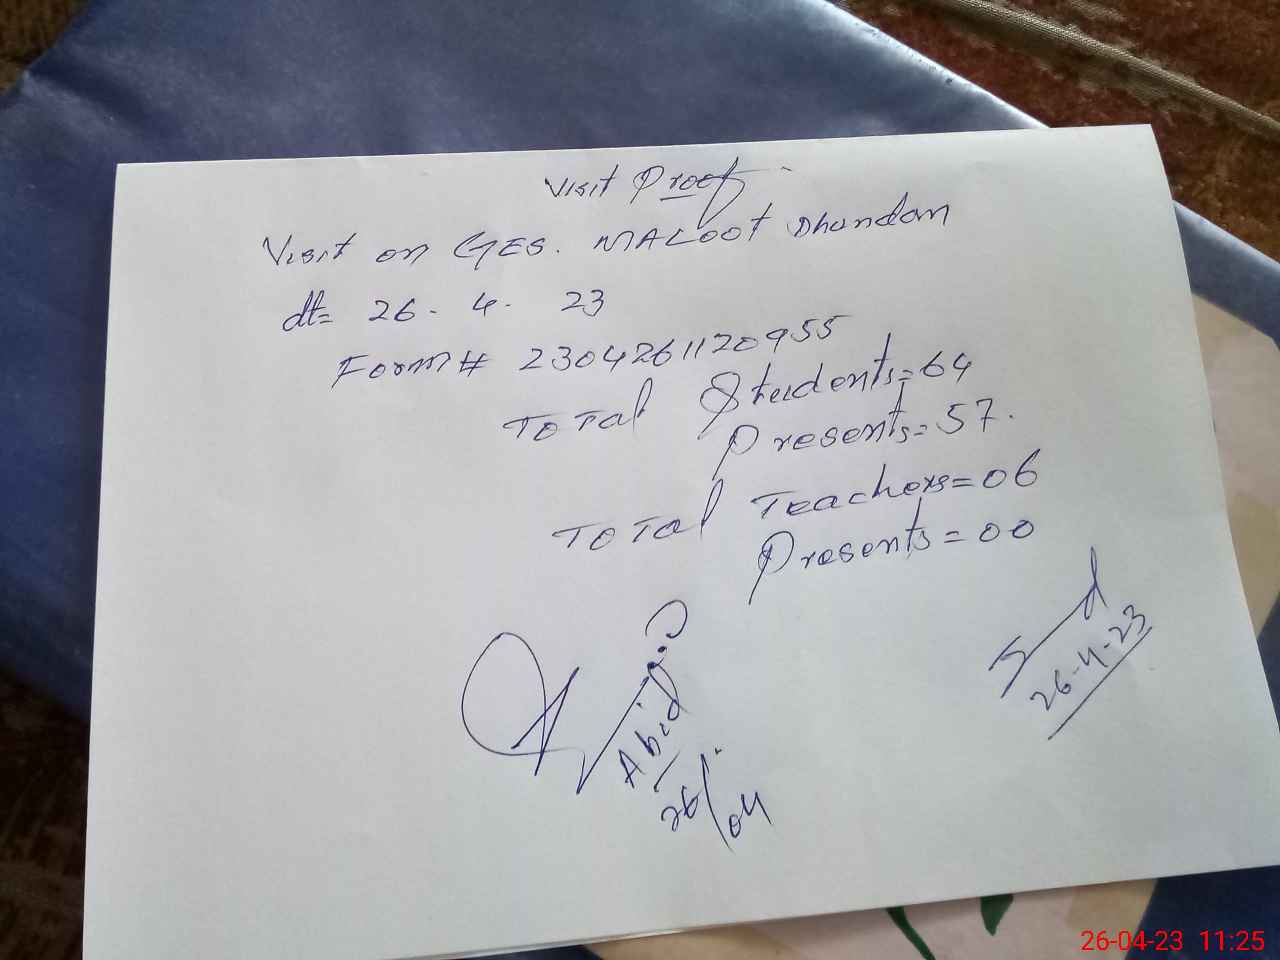 Visit Proof
Visit on GES. MALOOT Dhundan
dt= 26 - 4 - 23
Form# 2304261120955
Total Students = 64
Presents = 57.
Total Teachers = 06
Presents = 00
Abid
26/04
26-4-23
26-04-23 11:25